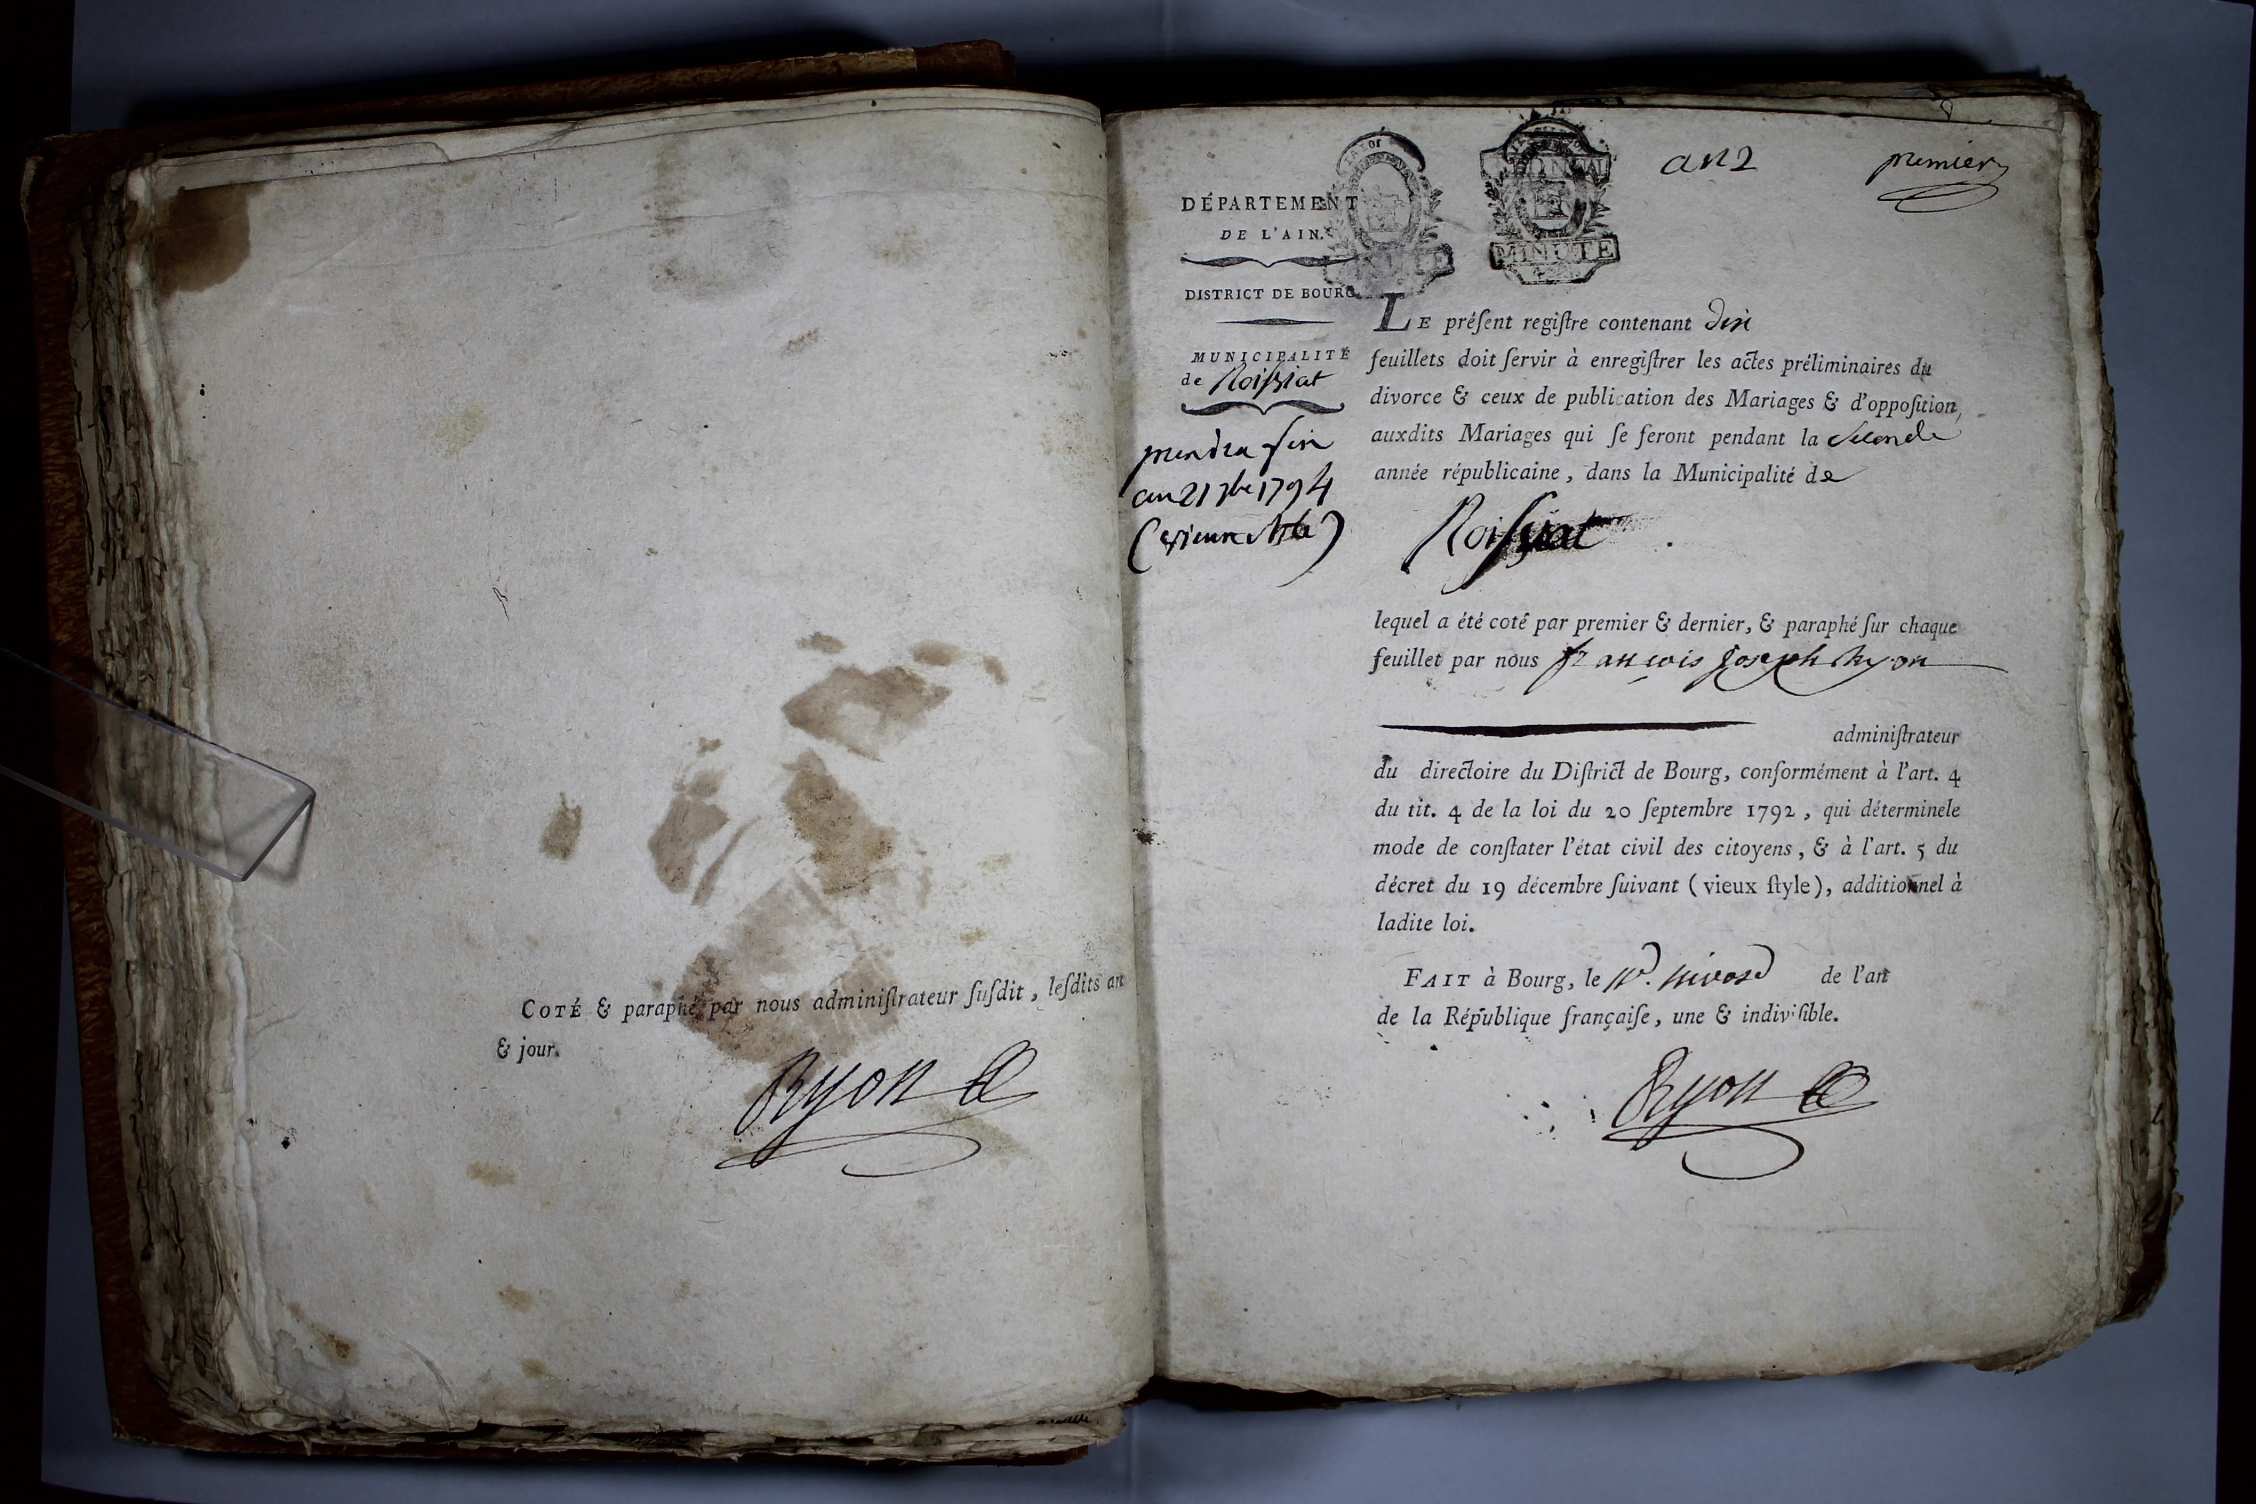 COTÉ & paraphé par nous adminiſtrateur ſuſdit, leſdits an
& jour.
Ryon
an 2
premier
LA LOI
MINUTE
DÉPARTEMENT
DE L'AIN.
DISTRICT DE BOURG
MUNICIPALITÉ
de Roiſsiat
prendra fin
au 21 7bre 1794
(vieux stile)
LE préſent regiſtre contenant dix
feuillets doit ſervir à enregiſtrer les actes préliminaires du
divorce & ceux de publication des Mariages & d'oppoſition,
auxdits Mariages qui ſe feront pendant la seconde
année républicaine, dans la Municipalité de
Roiſsiat
lequel a été coté par premier & dernier, & paraphé ſur chaque
feuillet par nous françois Joseph Ryon
adminiſtrateur
du directoire du Diſtrict de Bourg, conformément à l'art. 4
du tit. 4 de la loi du 20 ſeptembre 1792, qui déterminele
mode de conſtater l'état civil des citoyens, & à l'art. 5 du
décret du 19 décembre ſuivant (vieux ſtyle), additionnel à
ladite loi.
FAIT à Bourg, le nivose de l'an
de la République françaiſe, une & indiviſible.
Ryon